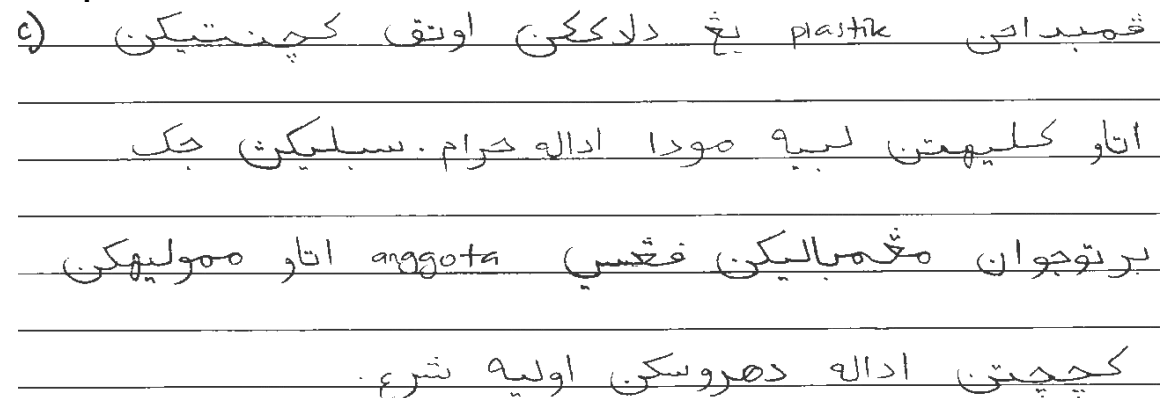 c) ڤمبداهن plastik يڠ دلاککن اونتق کچنتيکن
اتاو کليهتن لبيه مودا اداله حرام. سبليکڽ جک
برتوجوان مڠمباليکن فڠسي anggota اتاو مموليهکن
کچچتن اداله دهروسکن اوليه شرع.